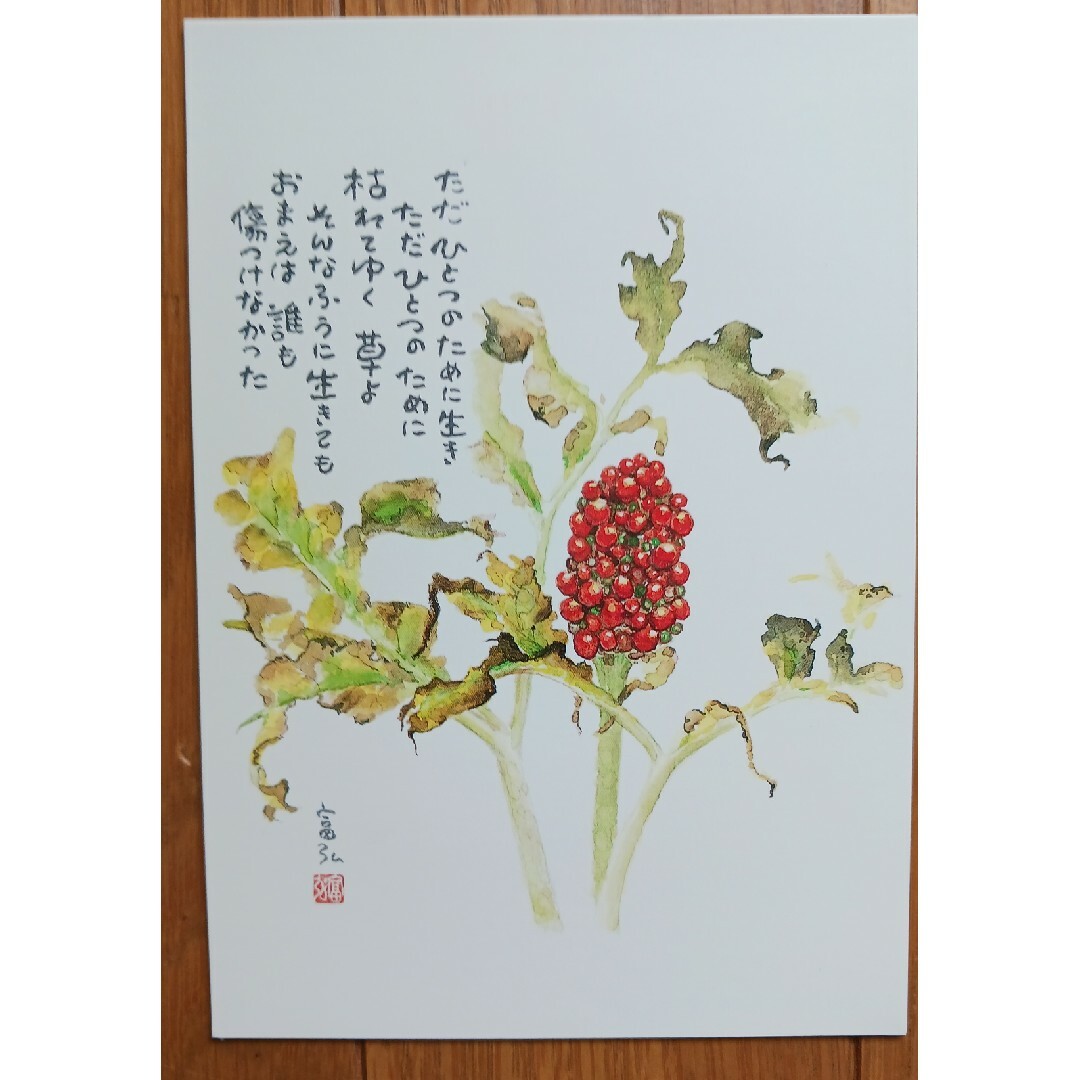 ただ ひとつのために生き
ただ ひとつのために
枯れてゆく 草よ
そんなふうに生きても
おまえは 誰も
傷つけなかった
富弘